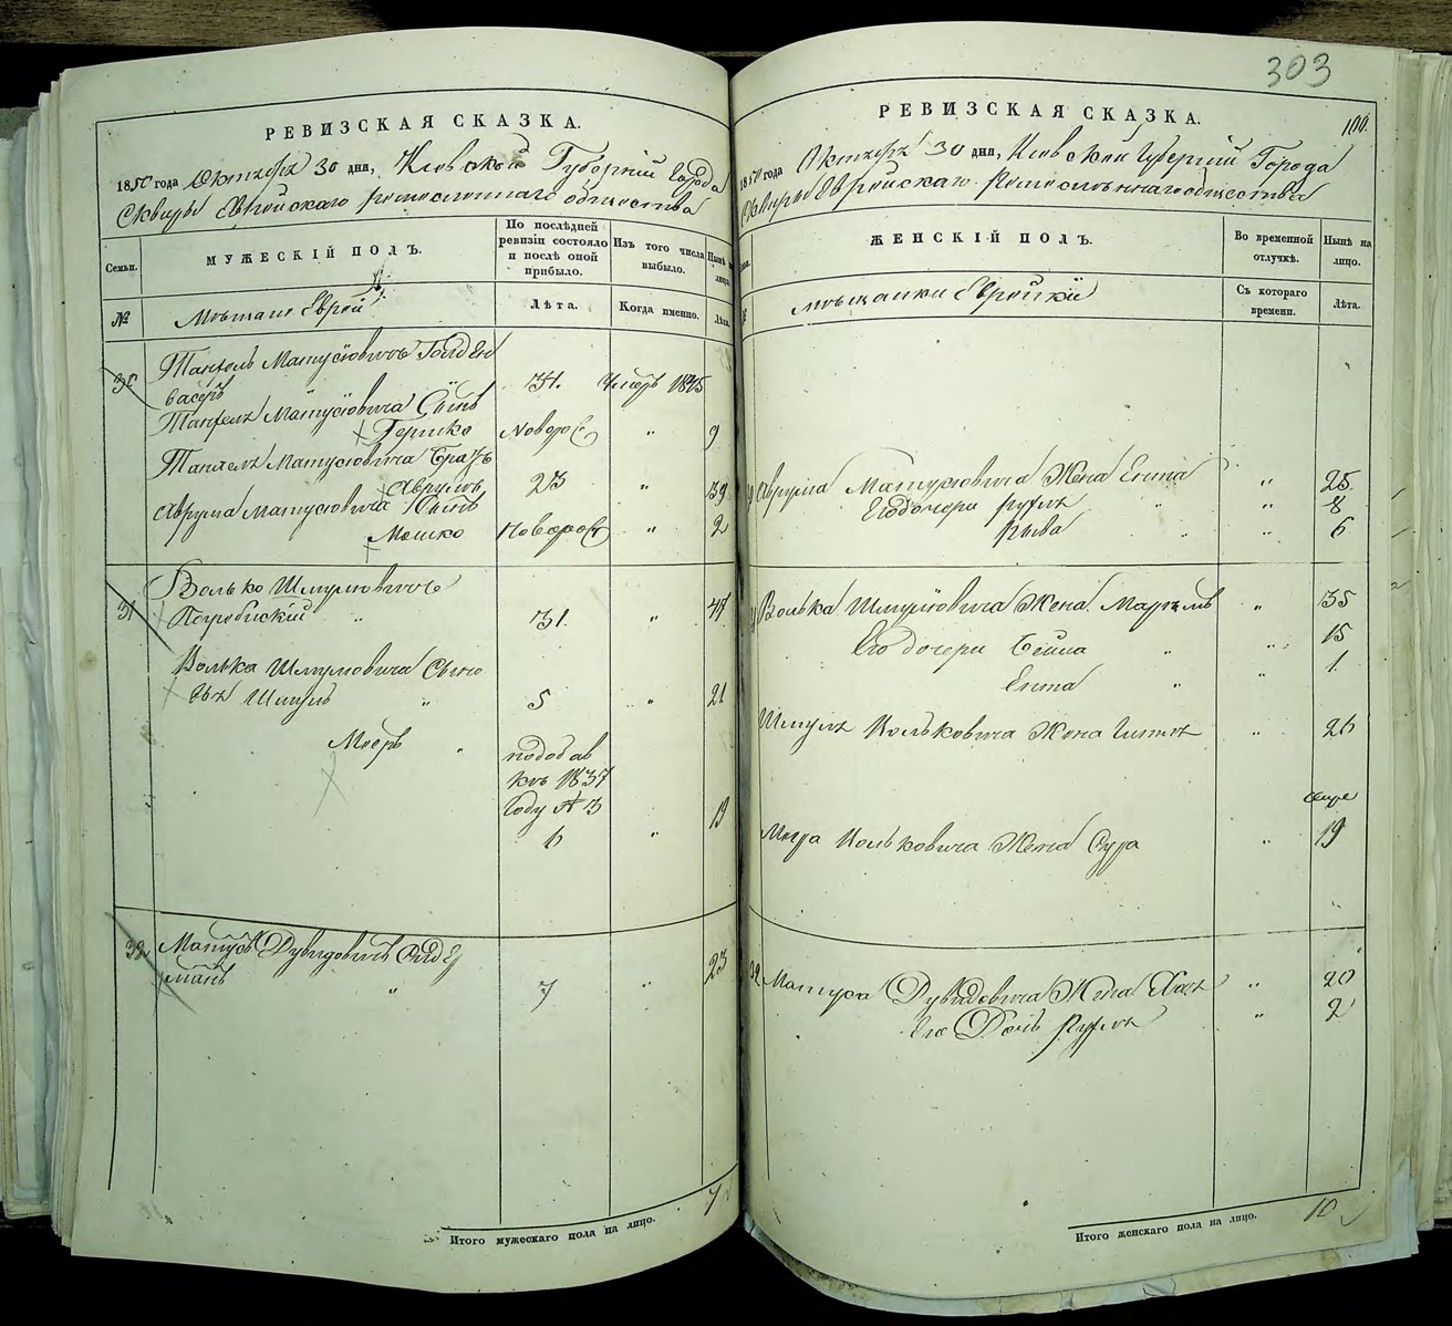 303
РЕВИЗСКАЯ СКАЗКА.
1850 года Октября 30 дня, Киевской Губерніи Города
Сквиры Еврейскаго ремесленнаго общества
Семьи.
МУЖЕСКІЙ ПОЛЪ.
По послѣдней ревизіи состояло и послѣ оной прибыло.
Изъ того числа выбыло.
Нынѣ на лицо.
№
Мѣщане Евреи
Лѣта.
Когда именно.
Лѣта.
Матусовичъ Голден
васеръ 31. Умеръ 1845
Матусовича Сынъ
Гершко Новорос. " 9
Матусовича Братъ
Аврумъ 23 " 39
Аврума Матусовича Сынъ
Мошко Новорос " 2
31 Волько Шмулевичъ
Погребискій " 31. " 47
Волька Шмулевича Сыно
вья Шмуль " 5 " 21
Мееръ " подобав
къ 1837
Году № 3
6 " 19
32 Матусъ Дувидовичъ
манъ " 7 " 23
7
Итого мужескаго пола на лицо.
РЕВИЗСКАЯ СКАЗКА.
100.
1850 года Октября 30 дня, Киевской Губерніи Города
Сквиры Еврейскаго Ремесленнаго общества
ЖЕНСКІЙ ПОЛЪ.
Во временной отлучкѣ.
Нынѣ на лицо.
Мѣщанки Еврейки
Съ котораго времени.
Лѣта.
Аврума Матусовича Жена Ента " 25
Его дочери Рухля " 8
Рыва " 6
Волька Шмулевича Жена " 35
Его дочери Бейла " " 15
Ента " " 1
Шмуля Вольковича Жена " 26
Меера Вольковича Жена Сура " 19
32 Матуса Дувидовича Жена Хая " 20
Его Дочь Рухля " 2
10
Итого женскаго пола на лицо.